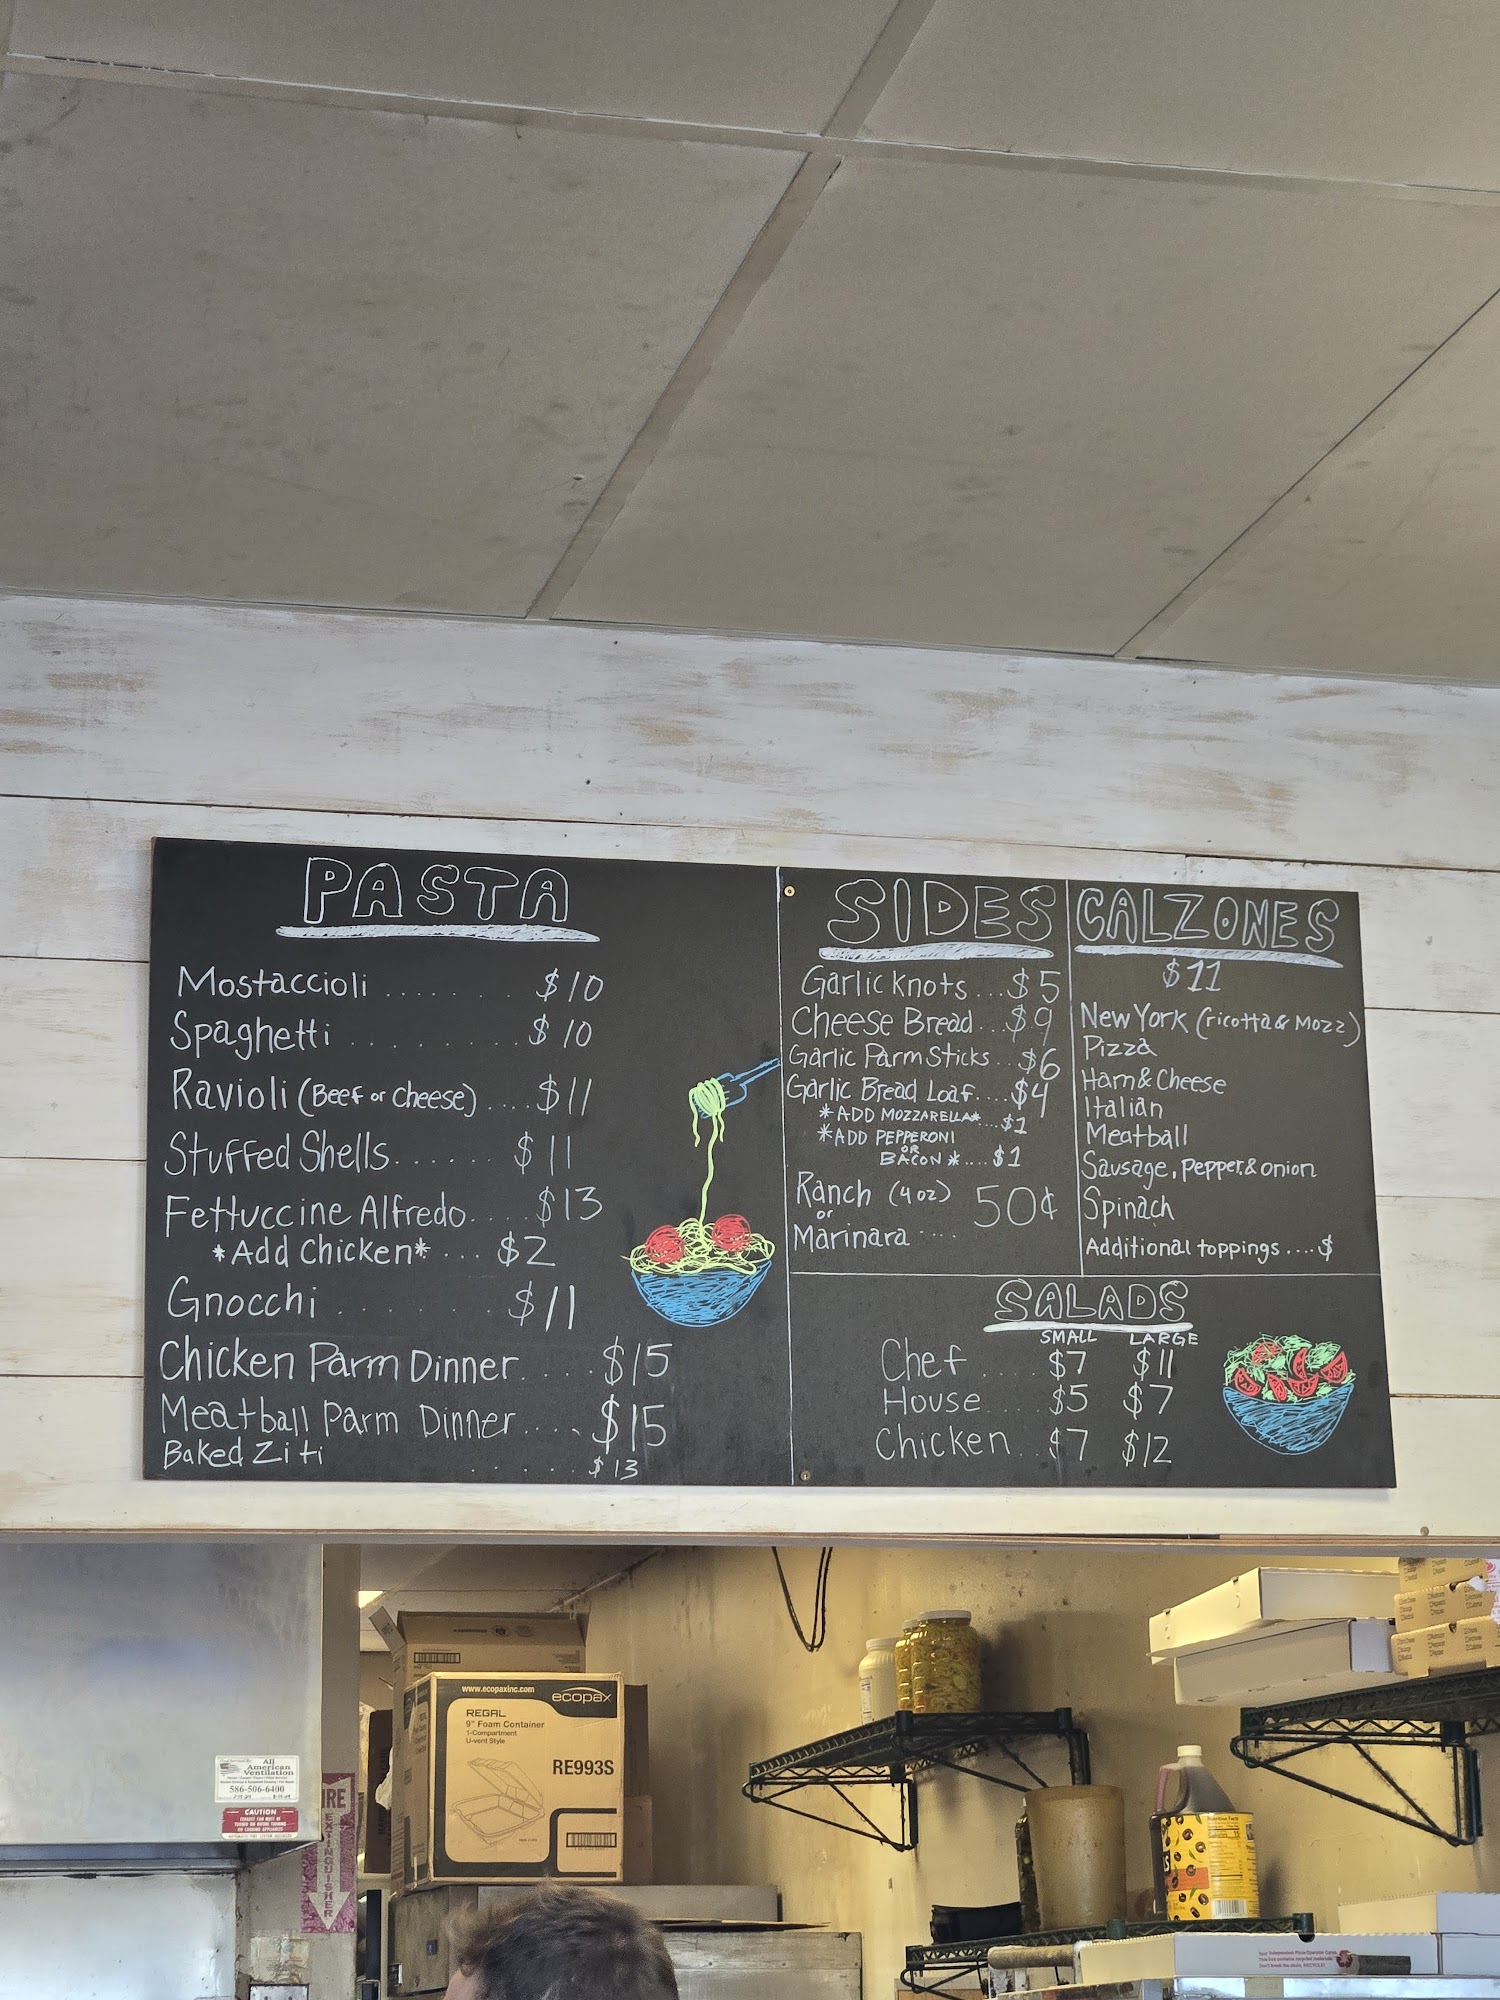 PASTA
Mostaccioli ....... $10
Spaghetti ......... $10
Ravioli (Beef or cheese) .... $11
Stuffed Shells ...... $11
Fettuccine Alfredo .... $13
*Add Chicken* ... $2
Gnocchi ....... $11
Chicken Parm Dinner .... $15
Meatball Parm Dinner .... $15
Baked Ziti ..... $13
SIDES
Garlic knots ... $5
Cheese Bread ... $9
Garlic Parm Sticks ... $6
Garlic Bread Loaf .... $4
*ADD MOZZARELLA* ... $1
*ADD PEPPERONI
OR
BACON* .... $1
Ranch (4oz) 50¢
or
Marinara ....
CALZONES
$11
New York (ricotta & Mozz)
Pizza
Ham & Cheese
Italian
Meatball
Sausage, pepper & onion
Spinach
Additional toppings .... $
SALADS
SMALL LARGE
Chef .... $7 $11
House .... $5 $7
Chicken .. $7 $12
www.ecopaxinc.com
ecopax
REGAL
9" Foam Container
1-Compartment
U-vent Style
RE993S
All
American
Ventilation
586-506-6400
CAUTION
IRE
EXTINGUISHER